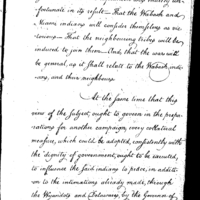 fortunate in its result – That the Wabash and
Miami indians will consider themselves as vic-
torious – That the neighbouring tribes will be
induced to join them – And, that the war will
be general, as it shall relate to the Wabash indi-
ans, and their neighbours.
At the same time that this
view of the subject, ought to govern in the prepara-
tions for another campaign, every collateral
measure, which could be adopted, consistently with
the dignity of government, ought to be executed,
to influence the said indians to peace, in addition
to the intimations already made, through
the Wyandots and Delawares, by the Governor of